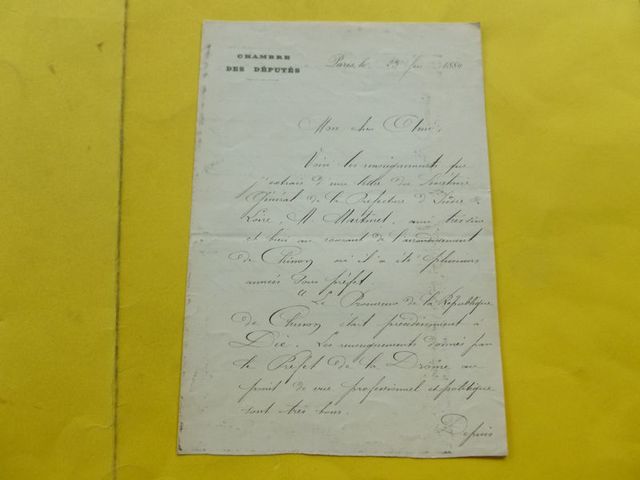 CHAMBRE
DES DÉPUTÉS
Paris, le 23 1880
Mon cher Ami,
Voici les renseignements que
j'extrais d'une lettre du Secrétaire
Général de la Préfecture d'Indre &
Loire, M. Martinet, ami très sûr
et bien au courant de l'arrondissement
de Chinon où il a été plusieurs
années Sous préfet
" Le Procureur de la République
de Chinon était précédemment à
Die. Les renseignements donnés par
le Préfet de la Drôme au
point de vue professionnel et politique
sont très bons.
Depuis